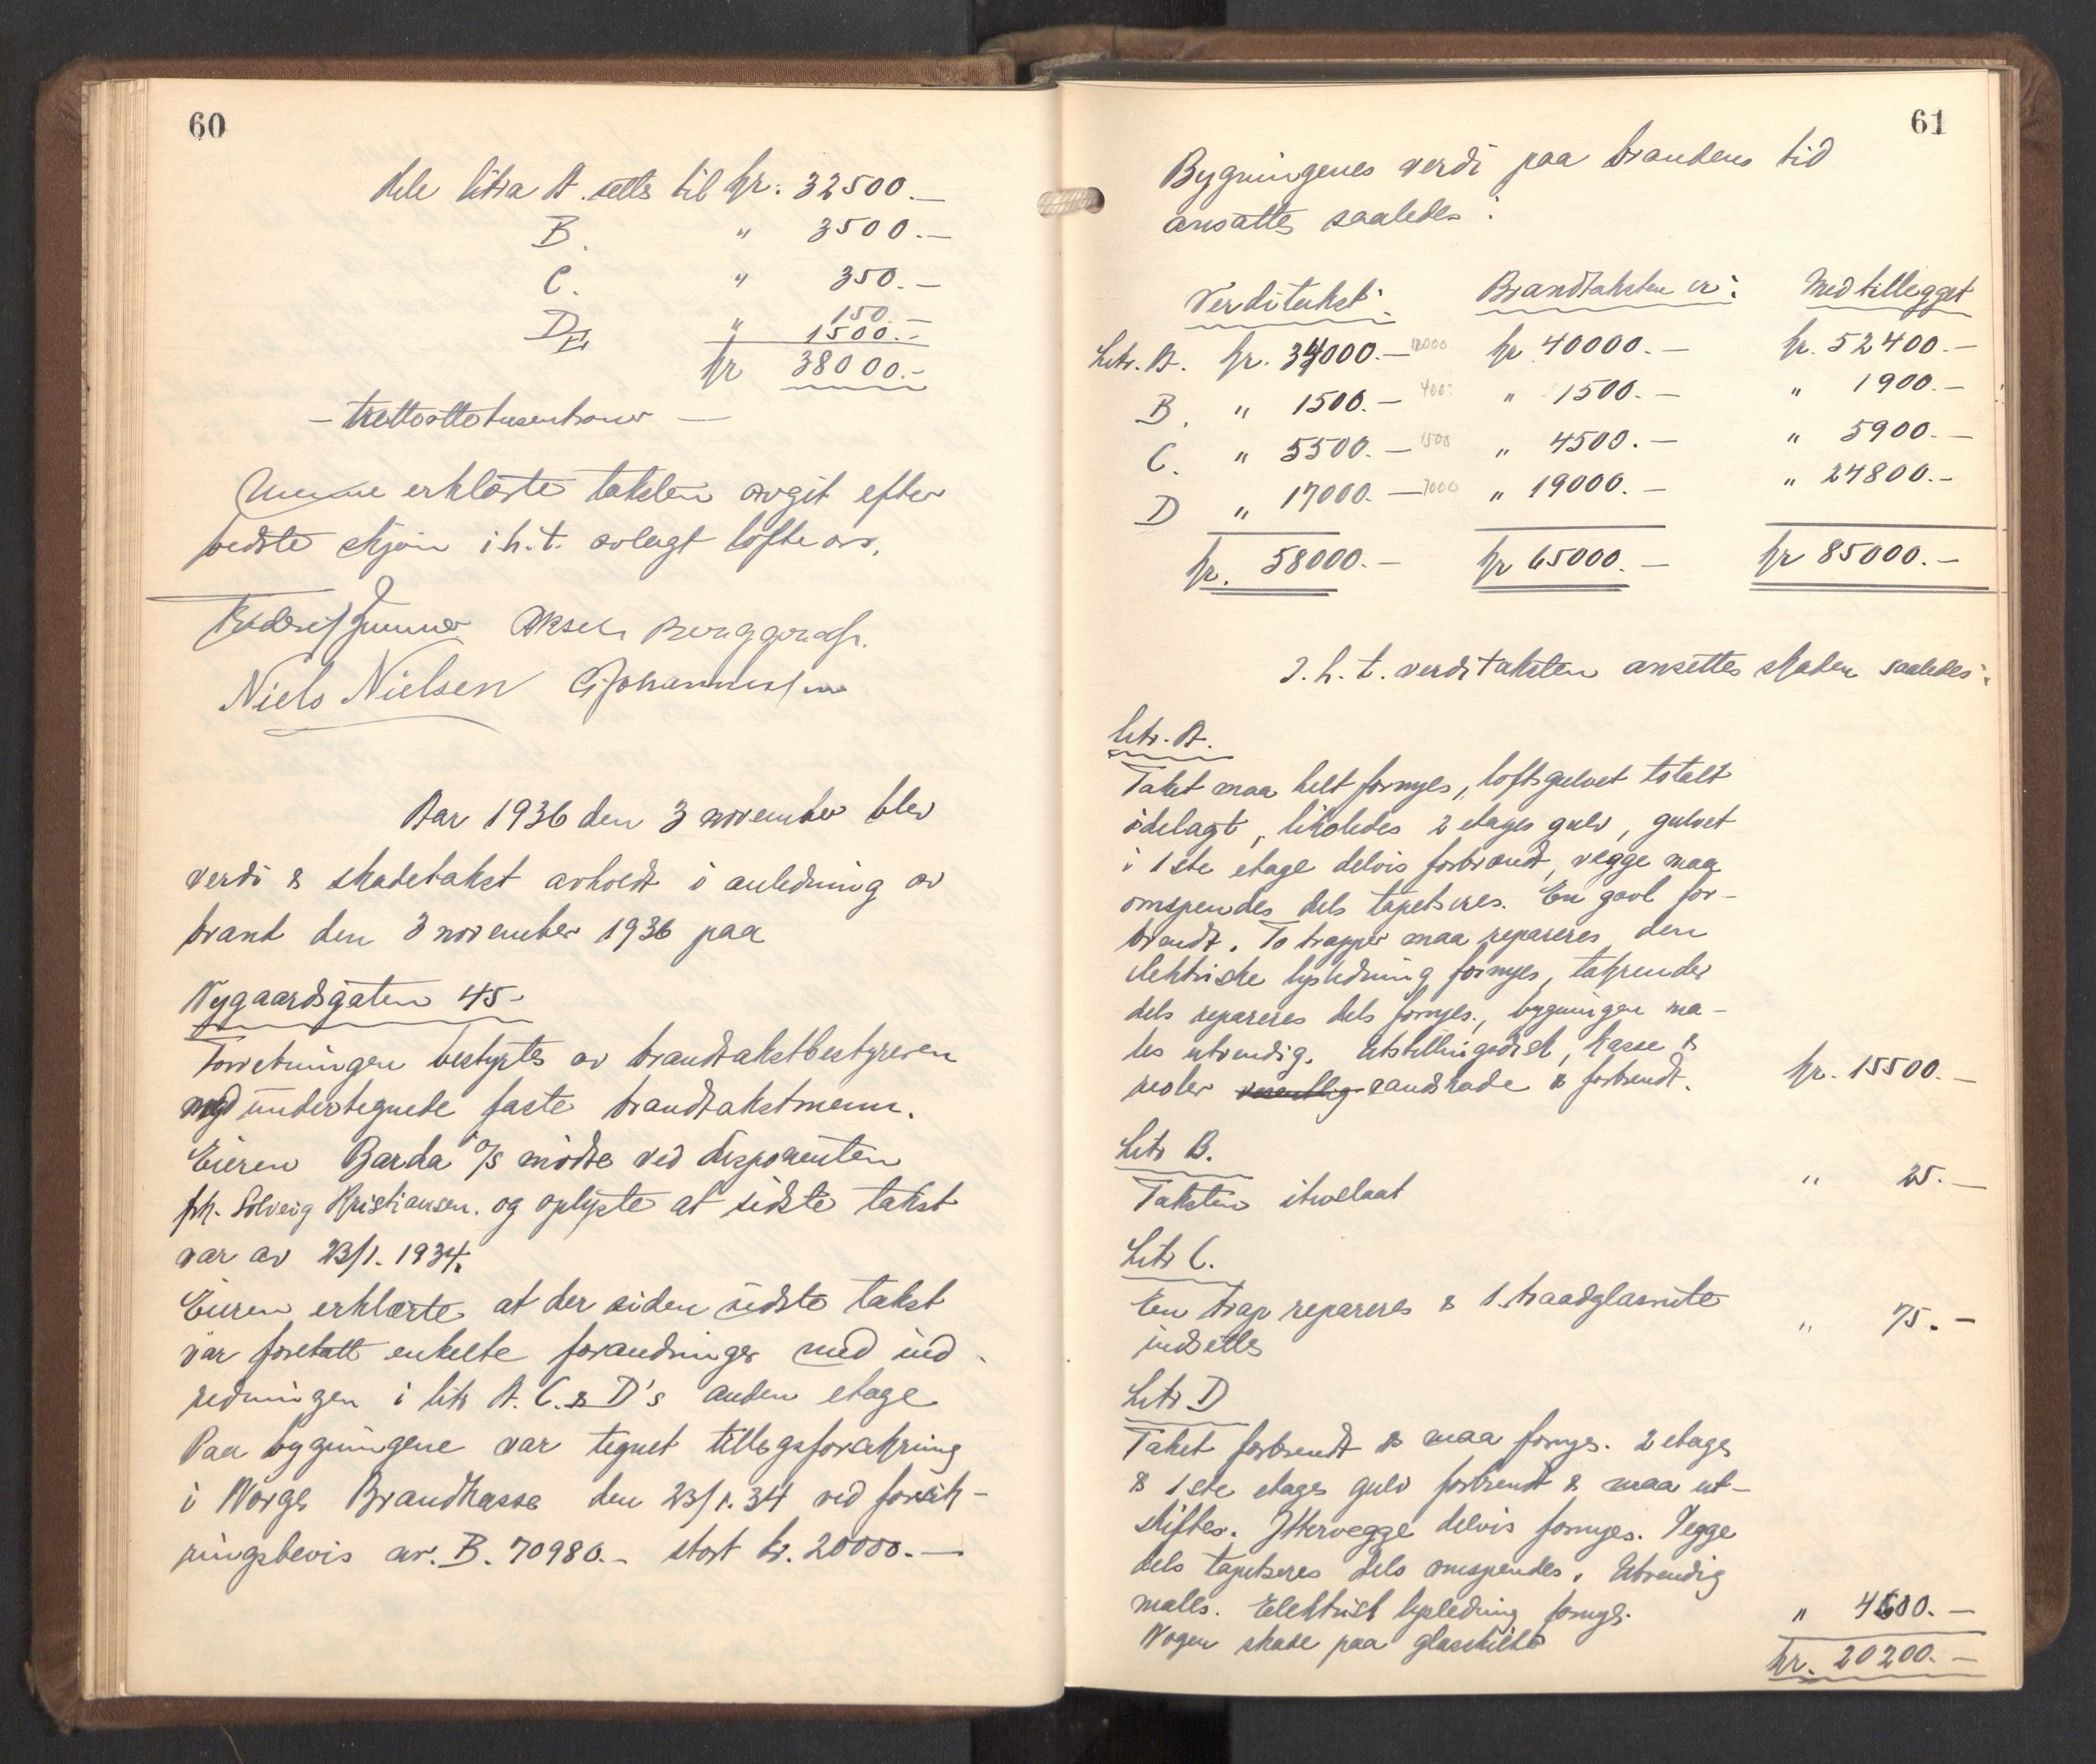 60
dele litra A. settes til kr. 32500.—
B. " 3500.—
C. " 350.—
D " 150.—
E " 1500.—
kr 38000.—
— trettiottetusenkroner —
erklærte taksten avgit efter
bedste skjøn i h.t. avlagt løfte
Niels Nielsen
Aar 1936 den 3 november blev
verdi & skadetakst avholdt i anledning av
brand den 3 november 1936 paa
Nygaardsgaten 45.
Forretningen bestyrtes av brandtakstbestyreren
med undertegnede faste brandtakstmenn.
Eieren Barda A/S mødte ved disponenten
frk. Solveig Kristiansen. og oplyste at sidste takst
var av 23/1. 1934.
Eieren erklærte at der siden sidste takst
var foretatt enkelte forandringer med ind-
redningen i litr A. C. & D's anden etage
Paa bygningene var tegnet tillegsforsikring
i Norges Brandkasse den 23/1. 34 ved forsik-
ringsbevis nr. B. 70980.— stort kr. 20000.—
61
Bygningenes verdi paa brandens tid
ansattes saaledes:
Verditakst: Brandtaksten er: Med tillegget
Litr. A. kr. 34000.— 12000 kr 40000.— kr. 52400.—
B. " 1500.— 400. " 1500.— " 1900.—
C. " 5500.— 1500 " 4500.— " 5900.—
D " 17000.— 7000 " 19000.— " 24800.—
kr. 58000.— kr 65000.— kr 85000.—
I. h. t. verditaksten ansettes skaden saaledes:
Litr. A.
Taket maa helt fornyes, loftsgulvet totalt
ødelagt, likeledes 2 etages gulv, gulvet
i 1ste etage delvis forbrendt, vegge maa
omspendes dels tapetseres. En gavl for-
brendt. To trapper maa repareres, den
elektriske lysledning fornyes, takrender
dels repareres dels fornyes., bygningen ma-
les utvendig. Utstillingsdisk, kasse &
reoler vesentlig vandskade & forbrendt. kr. 15500.—
Litr B.
Taksten ituslaat " 25.—
Litr C.
En trap repareres & 1. traadglasrute
indsettes " 75.—
Litr D
Taket forbrendt & maa fornyes. 2 etages
& 1ste etages gulv forbrendt & maa ut-
skiftes. Yttervegge delvis fornyes. Vegge
dels tapetseres dels omspendes. Utvendig
males. Elektrisk lysledning fornyes.
Nogen skade paa glasskilt " 4600.—
kr. 20200.—